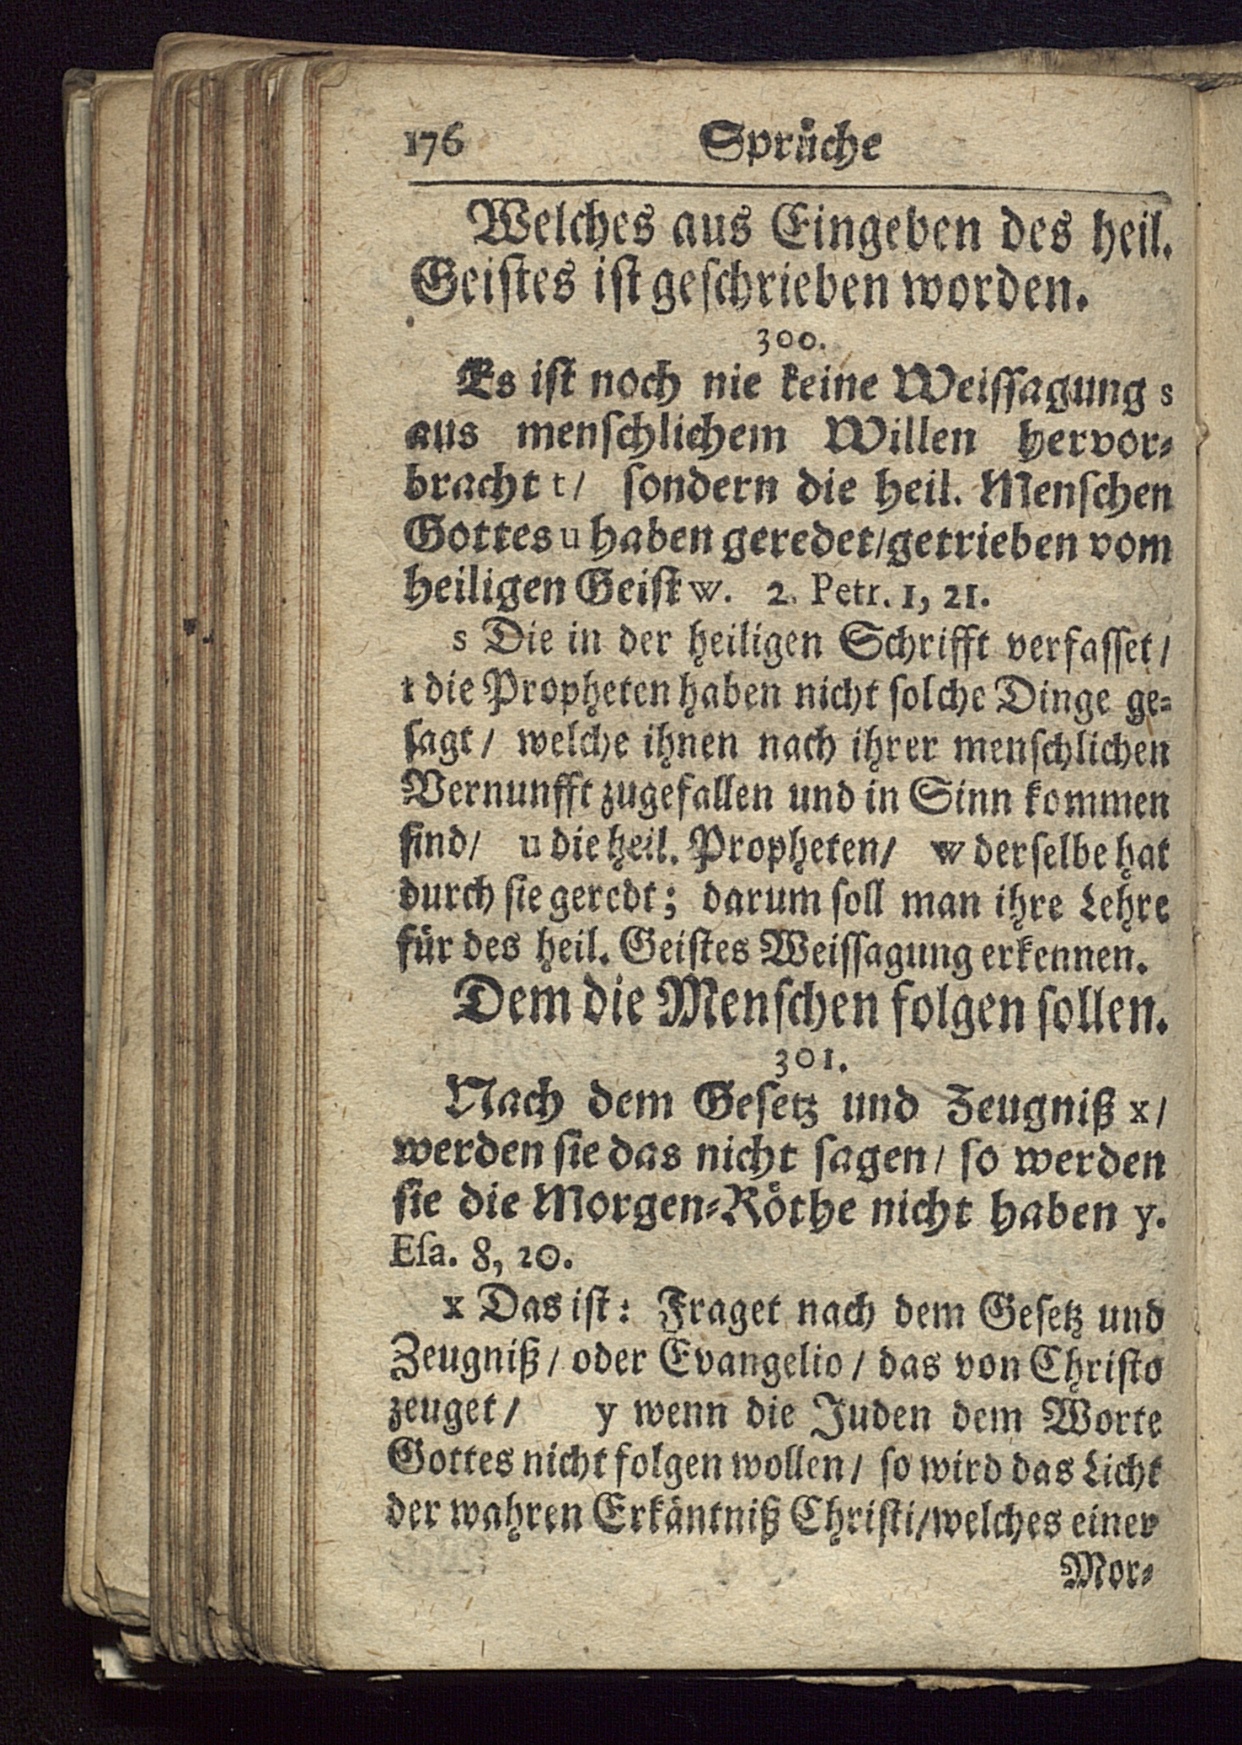 176 Sprüche
Welches aus Eingeben des heil.
Geistes ist geschrieben worden.
300.
Es ist noch nie keine Weissagung s
aus menschlichem Willen hervor-
bracht t/ sondern die heil. Menschen
Gottes u haben geredet/getrieben vom
heiligen Geist w. 2. Petr. 1, 21.
s Die in der heiligen Schrifft verfasset/
t die Propheten haben nicht solche Dinge ge-
sagt/ welche ihnen nach ihrer menschlichen
Vernunfft zugefallen und in Sinn kommen
sind/ u die heil. Propheten/ w derselbe hat
durch sie geredt; darum soll man ihre Lehre
für des heil. Geistes Weissagung erkennen.
Dem die Menschen folgen sollen.
301.
Nach dem Gesetz und Zeugniß x/
werden sie das nicht sagen/ so werden
sie die Morgen-Röthe nicht haben y.
Esa. 8, 20.
x Das ist: Fraget nach dem Gesetz und
Zeugniß/ oder Evangelio/ das von Christo
zeuget/ y wenn die Juden dem Worte
Gottes nicht folgen wollen/ so wird das Licht
der wahren Erkäntniß Christi/welches einer
Mor-